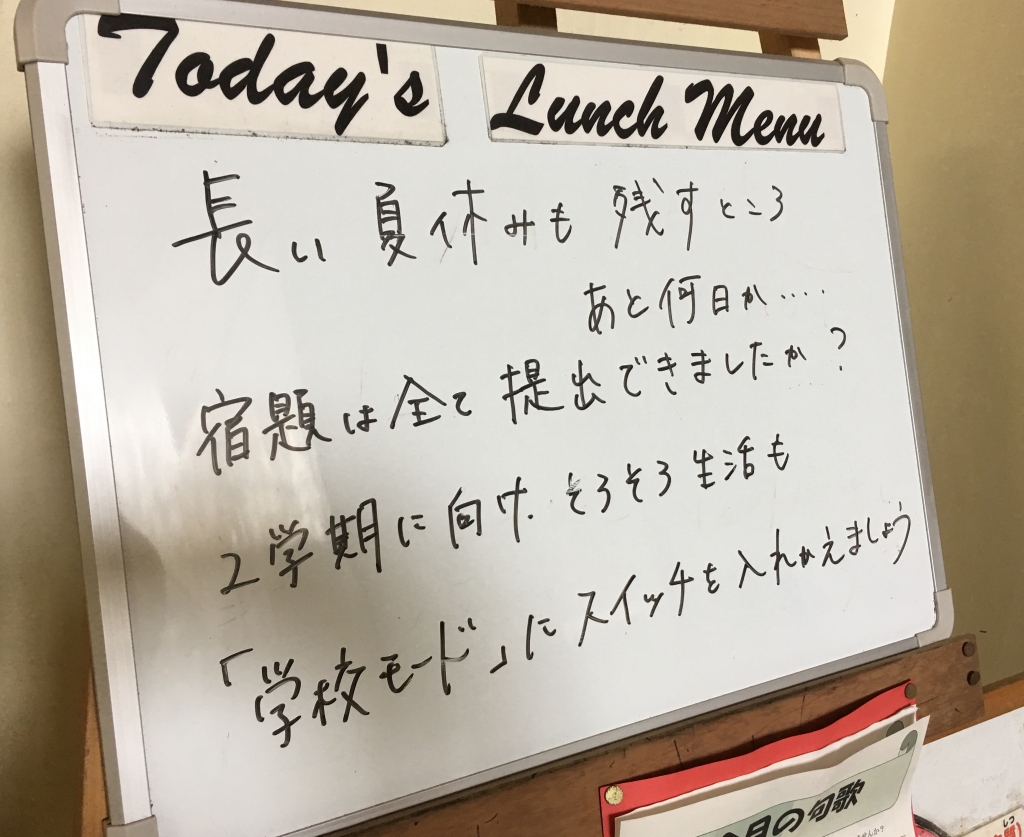 Today's Lunch Menu
長い夏休みも残すところ
あと何日か‥‥
宿題は全て提出できましたか?
2学期に向け、そろそろ生活も
「学校モード」にスイッチを入れかえましょう
今月の句歌